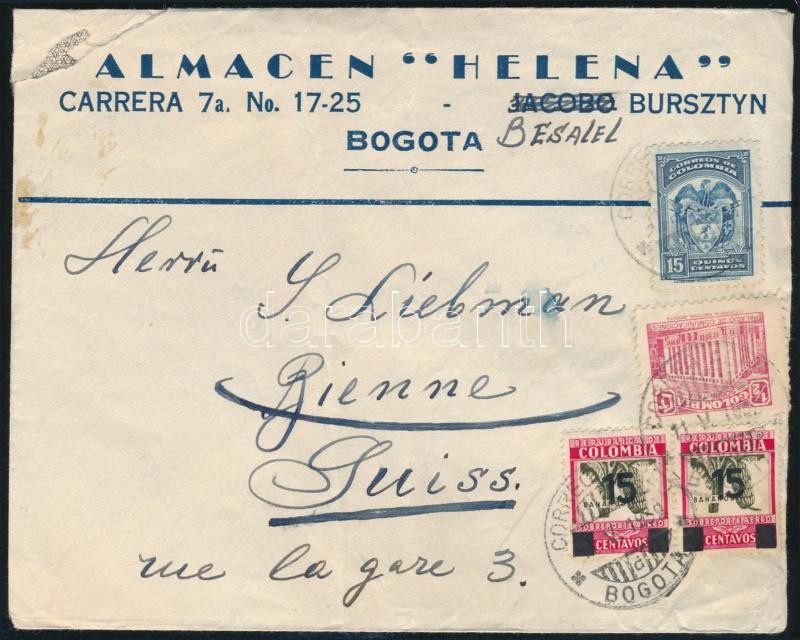 ALMACEN "HELENA"
CARRERA 7a. No. 17-25 - JACOBO BURSZTYN
BOGOTA BESALEL
CORREOS DE
COLOMBIA
15 QUINCE
CENTAVOS
Herrn
S. Liebman
Bienne
Suiss.
rue la gare 3.
darabanth
PALACIO DE COMUNICACIONES
COLOMBIA
1/2
REPUBLICA DE
COLOMBIA
15
BANANOS
SOBREPORTE AEREO
CENTAVOS
REPUBLICA DE
COLOMBIA
15
BANANOS
SOBREPORTE AEREO
CENTAVOS
BOGOTA